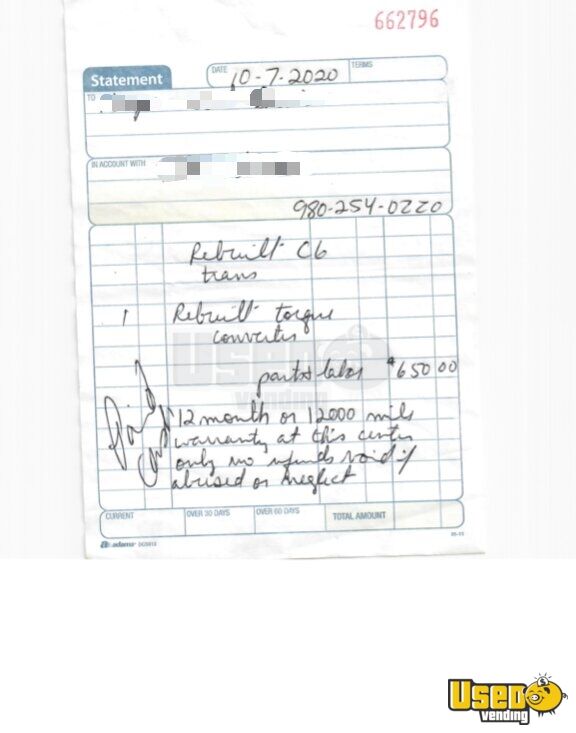 662796
Statement
DATE 10-7-2020 TERMS
TO
IN ACCOUNT WITH
980-254-0220
Rebuilt C6
trans
1 Rebuilt torque
converter
part & labor $650 00
Paid
Cash
12 month or 12000 mile
warranty at this center
only no refunds void if
abused or neglect
CURRENT OVER 30 DAYS OVER 60 DAYS TOTAL AMOUNT
adams DC5812
USED vending
USED vending